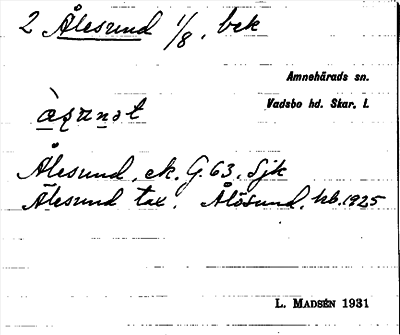 2 Ålesund 1/8, bek
Amnehärads sn.
Vadsbo hd. Skar. l.
Ålesund, ek. G. 63. Gjk
Ålesund tax. Ålösund, kb. 1925
L. MADSÉN 1931